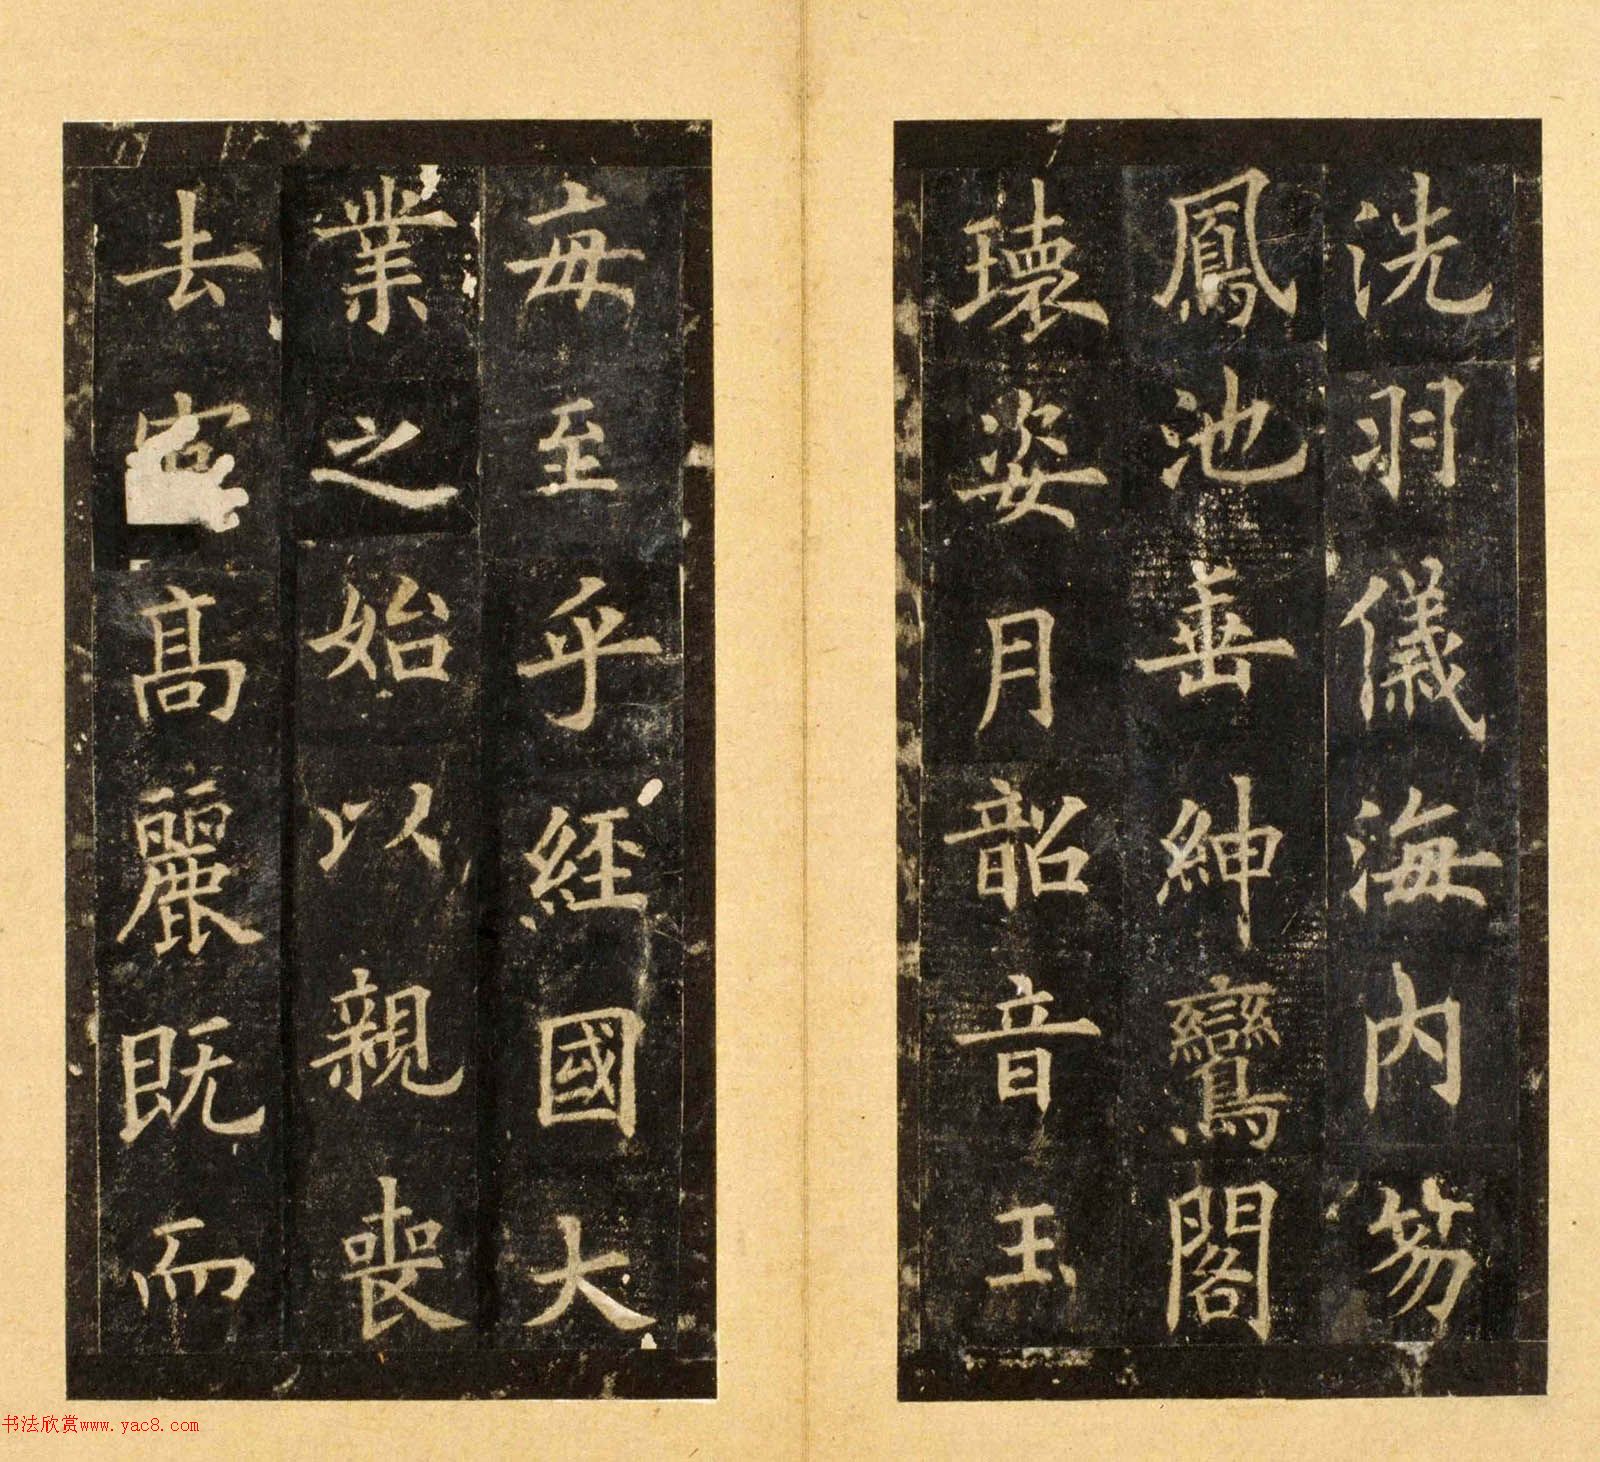 洗羽儀海内笏
鳳池垂紳鸞閣
瓌姿月韶音玉
每至乎經國大
業之始以親喪
去官高麗既而
书法欣赏www.yac8.com